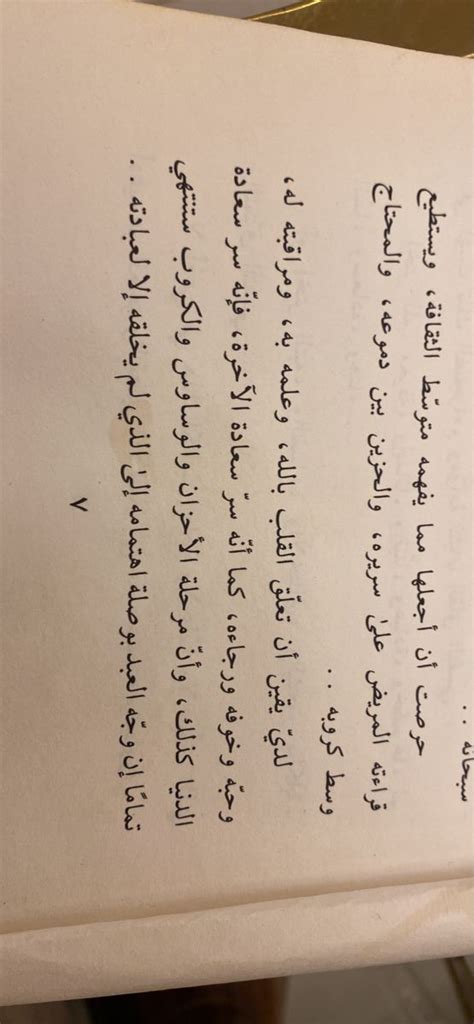 سبحانه . .
حرصت أن أجعلها مما يفهمه متوسّط الثقافة، ويستطيع
قراءته المريض على سريره، والحزين بين دموعه، والمحتاج
وسط كروبه . .
لديّ يقين أن تعلّق القلب بالله، وعلمه به، ومراقبته له،
وحبّه وخوفه ورجاءه، كما أنّه سرّ سعادة الآخرة، فإنّه سر سعادة
الدنيا كذلك، وأنّ مرحلة الأحزان والوساوس والكروب ستنتهي
تمامًا إن وجّه العبد بوصلة اهتمامه إلى الذي لم يخلقه إلا لعبادته . .
٧